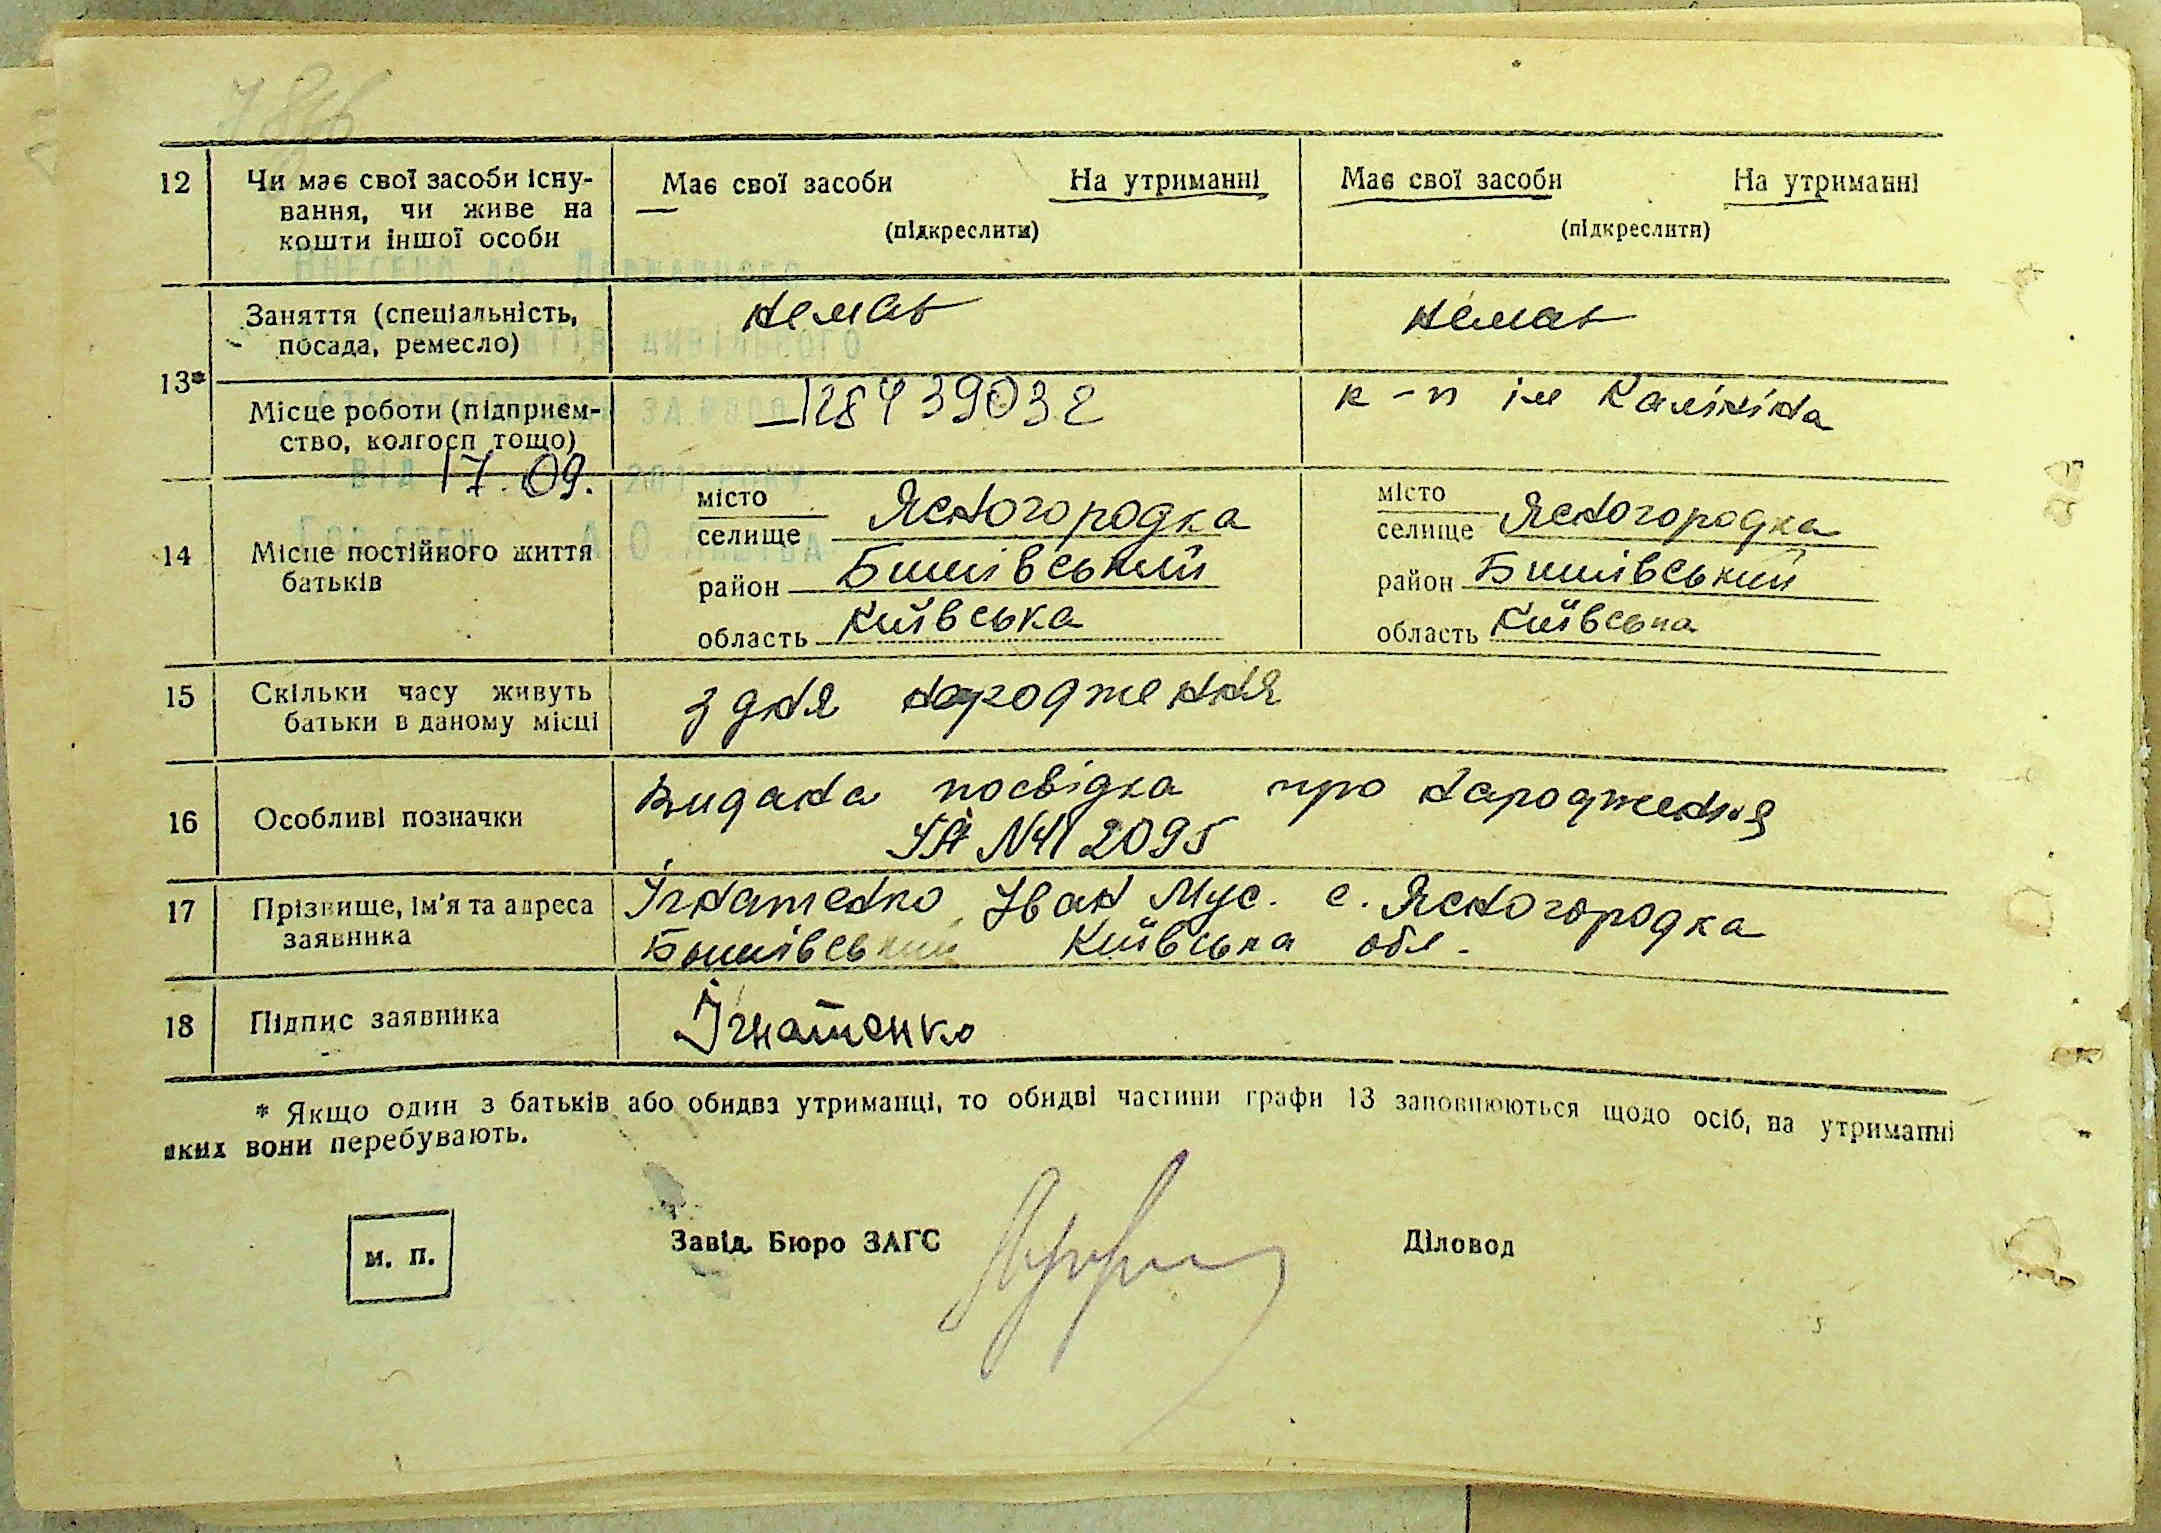 12 Чи має свої засоби існу-
вання, чи живе на
кошти іншої особи
Має свої засоби На утриманні
(підкреслити)
Має свої засоби На утриманні
(підкреслити)
Внесено до Державного
13* Заняття (спеціальність,
посада, ремесло)
немає
немає
Місце роботи (підприєм-
ство, колгосп тощо)
128439032
к-п ім Калініна
від 17.09.
14 Місце постійного життя
батьків
місто
селище Ясногородка
район Бишівський
область Київська
місто
селище Ясногородка
район Бишівський
область Київська
15 Скільки часу живуть
батьки в даному місці
з дня народження
16 Особливі позначки
Видана посвідка про народження
УА № 412095
17 Прізвище, ім'я та адреса
заявника
Ігнатенко Іван Мус. с. Ясногородка
Бишівський Київська обл.
18 Підпис заявника
Ігнатенко
* Якщо один з батьків або обидва утриманці, то обидві частини графи 13 заповнюються щодо осіб, на утриманні
яких вони перебувають.
м. п.
Завід. Бюро ЗАГС
Діловод